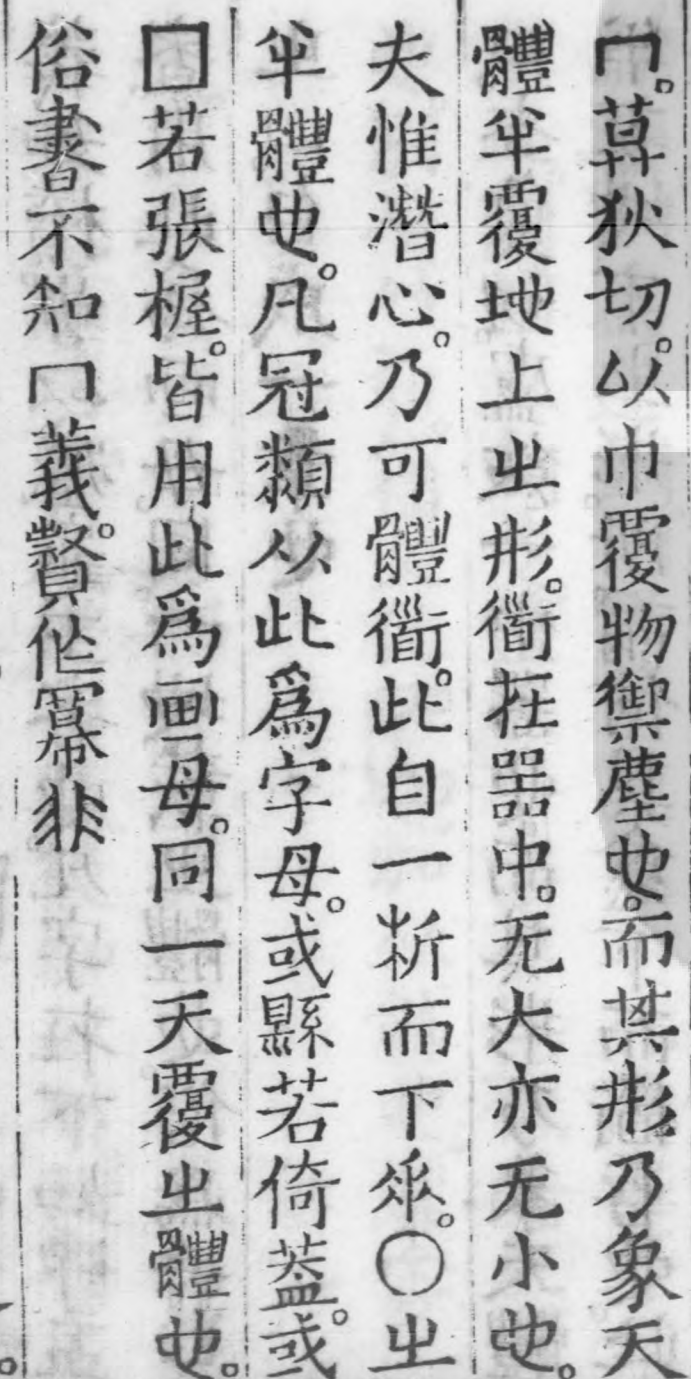 冂。莫狄切。以巾覆物禦塵也。而其形乃象天
體半覆地上㞢形。衟在器中。无大亦无小也。
夫惟潛心。乃可體衟。此自一析而下𠂹。〇㞢
半體也。凡冠類从此爲字母。或縣若倚蓋。或
囗若張幄。皆用此爲画母。同一天覆㞢體也。
俗書不知冂義。贅作冪非